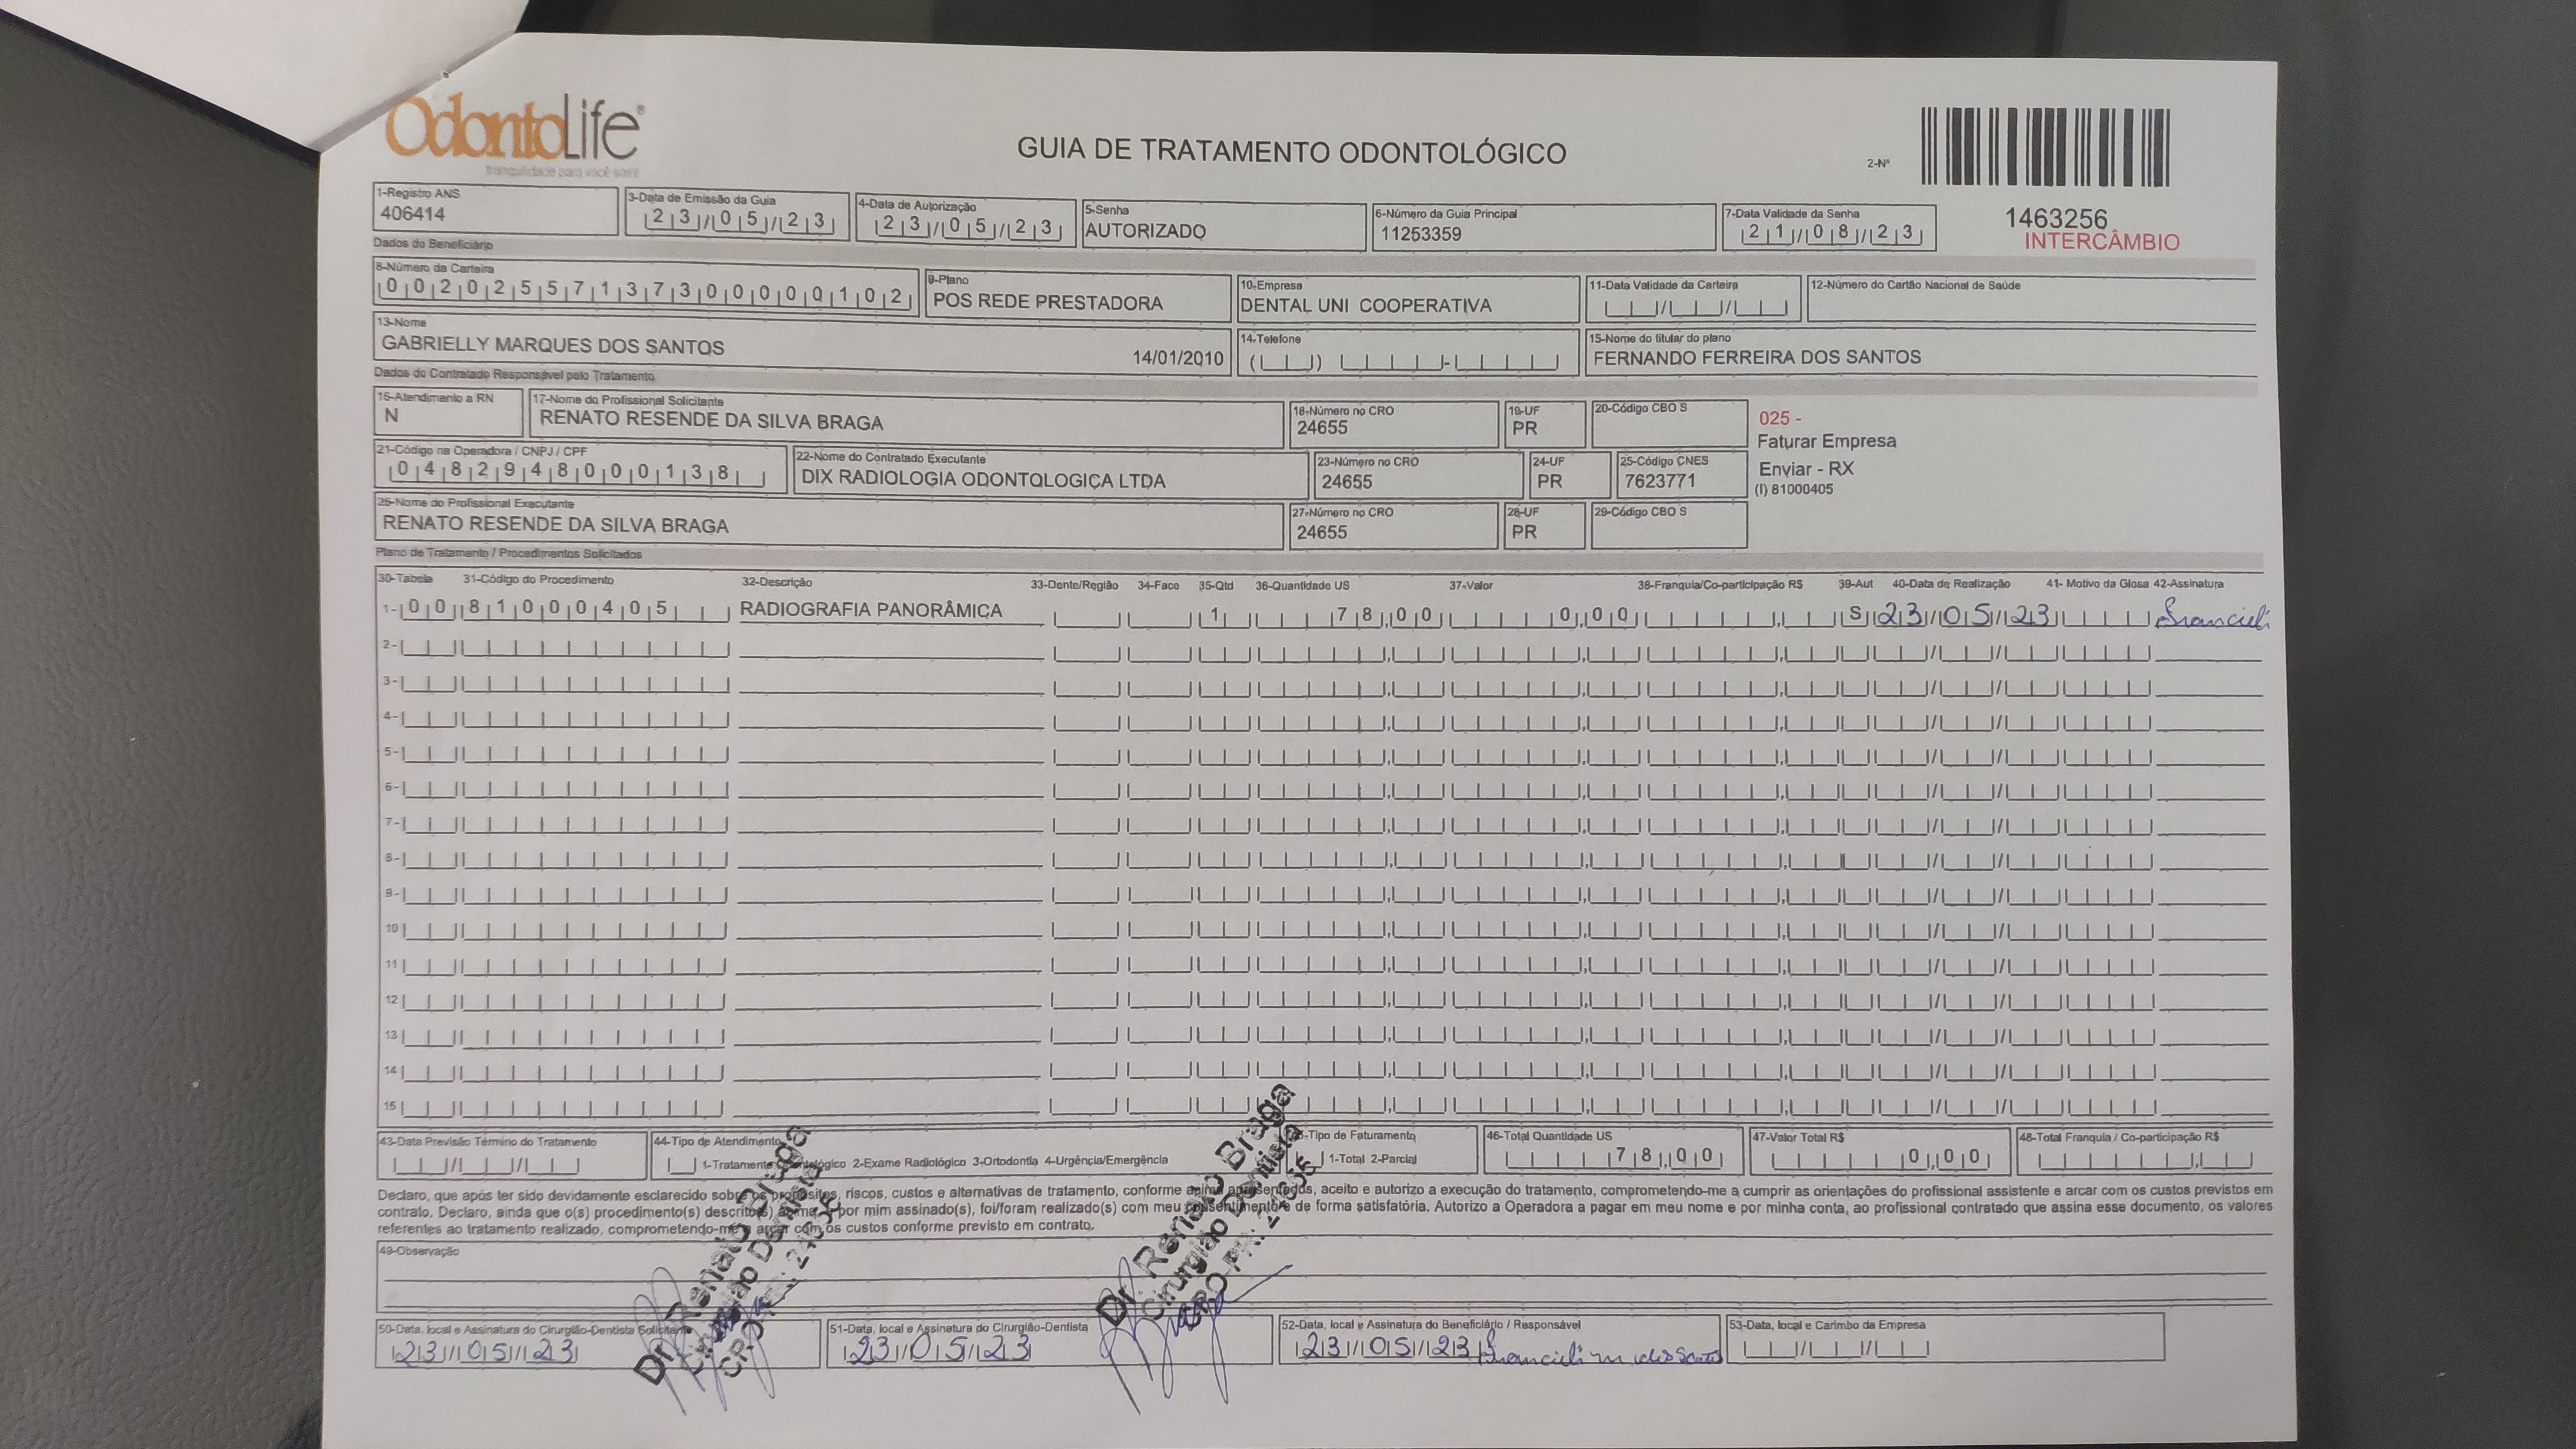 OdontoLife®
tranquilidade para você sorrir
GUIA DE TRATAMENTO ODONTOLÓGICO
2-Nº
1463256
INTERCÂMBIO
1-Registro ANS
406414
3-Data de Emissão da Guia
23/05/23
4-Data de Autorização
23/05/23
5-Senha
AUTORIZADO
6-Número da Guia Principal
11253359
7-Data Validade da Senha
21/08/23
Dados do Beneficiário
8-Número da Carteira
00202557137300000102
9-Plano
POS REDE PRESTADORA
10-Empresa
DENTAL UNI COOPERATIVA
11-Data Validade da Carteira
12-Número do Cartão Nacional de Saúde
13-Nome
GABRIELLY MARQUES DOS SANTOS 14/01/2010
14-Telefone
15-Nome do titular do plano
FERNANDO FERREIRA DOS SANTOS
Dados do Contratado Responsável pelo Tratamento
16-Atendimento a RN
N
17-Nome do Profissional Solicitante
RENATO RESENDE DA SILVA BRAGA
18-Número no CRO
24655
19-UF
PR
20-Código CBO S
025 -
Faturar Empresa
Enviar - RX
(I) 81000405
21-Código na Operadora / CNPJ / CPF
04829480000138
22-Nome do Contratado Executante
DIX RADIOLOGIA ODONTOLOGICA LTDA
23-Número no CRO
24655
24-UF
PR
25-Código CNES
7623771
26-Nome do Profissional Executante
RENATO RESENDE DA SILVA BRAGA
27-Número no CRO
24655
28-UF
PR
29-Código CBO S
Plano de Tratamento / Procedimentos Solicitados
30-Tabela 31-Código do Procedimento 32-Descrição 33-Dente/Região 34-Face 35-Qtd 36-Quantidade US 37-Valor 38-Franquia/Co-participação R$ 39-Aut 40-Data de Realização 41- Motivo da Glosa 42-Assinatura
1- 00 81000405 RADIOGRAFIA PANORÂMICA 1 78,00 0,00 S 23/05/23 Francieli
2-
3-
4-
5-
6-
7-
8-
9-
10
11
12
13
14
15
43-Data Previsão Término do Tratamento
44-Tipo de Atendimento
1-Tratamento Odontológico 2-Exame Radiológico 3-Ortodontia 4-Urgência/Emergência
45-Tipo de Faturamento
1-Total 2-Parcial
46-Total Quantidade US
78,00
47-Valor Total R$
0,00
48-Total Franquia / Co-participação R$
Declaro, que após ter sido devidamente esclarecido sobre os propósitos, riscos, custos e alternativas de tratamento, conforme acima apresentados, aceito e autorizo a execução do tratamento, comprometendo-me a cumprir as orientações do profissional assistente e arcar com os custos previstos em
contrato. Declaro, ainda que o(s) procedimento(s) descrito(s) acima, e por mim assinado(s), foi/foram realizado(s) com meu consentimento e de forma satisfatória. Autorizo a Operadora a pagar em meu nome e por minha conta, ao profissional contratado que assina esse documento, os valores
referentes ao tratamento realizado, comprometendo-me a arcar com os custos conforme previsto em contrato.
49-Observação
Dr. Renato Braga
Cirurgião Dentista
CRO-PR: 24655
Dr. Renato Braga
Cirurgião Dentista
CRO-PR: 24655
50-Data, local e Assinatura do Cirurgião-Dentista Solicitante
23/05/23
51-Data, local e Assinatura do Cirurgião-Dentista
23/05/23
52-Data, local e Assinatura do Beneficiário / Responsável
23/05/23 Francieli m dos Santos
53-Data, local e Carimbo da Empresa